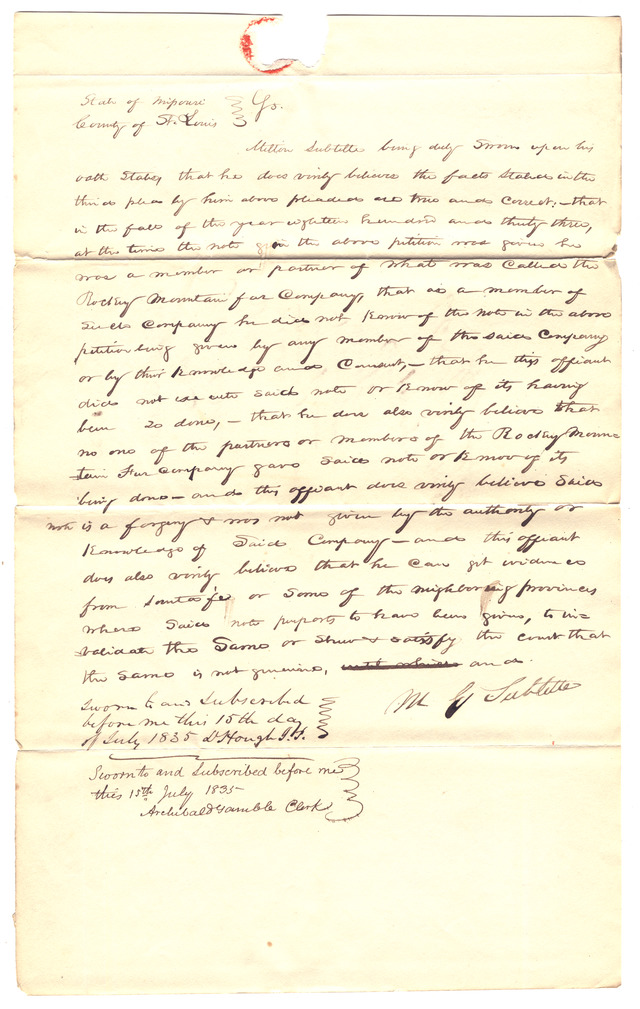 State of Missouri } Ss.
County of St. Louis }
Milton Sublette being duly Sworn upon his
oath States that he does verily believe the facts Stated in the
third plea by him above pleaded are true and Correct; – that
in the fall of the year eighteen hundred and thirty three,
at the time the note in the above petition was given he
was a member or partner of what was Called the
Rockey Mountain fur Company, that as a member of
Such Company he did not Know of the note in the above
petition being given by any member of the said Company
or by their Knowledge and Consent, – that he this affiant
did not execute said note or Know of its having
been So done, – that he does also verily believe that
no one of the partners or members of the Rockey Moun=
tain Fur Company gave Said note or Know of its
being done – and this affiant does verily believe Said
note is a forgery & was not given by the authority or
Knowledge of Said Company – and this affiant
does also verily believe that he Can get evidence
from Santa fe or Some of the neighboring provinces
where Said note purports to have been given, to in=
validate the Same or Shew & satisfy the court that
the Same is not genuine, and.
Sworn to and Subscribed
before me this 15th day
of July 1835 D Hough J.P.
M G Sublette
Sworn to and Subscribed before me
this 15th July 1835
Archibald Gamble Clerk